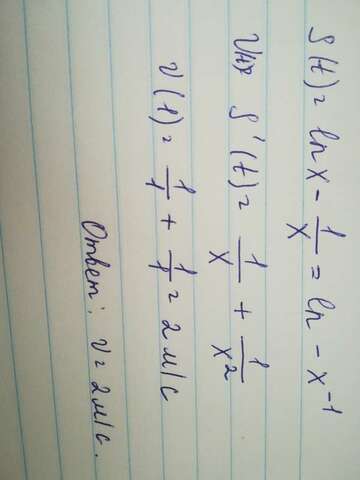 S(t) = ln x - 1/x = ln - x⁻¹
S'(t) = 1/x + 1/x²
V(1) = 1/1 + 1/1 = 2 м/с
Ответ: V = 2 м/с.